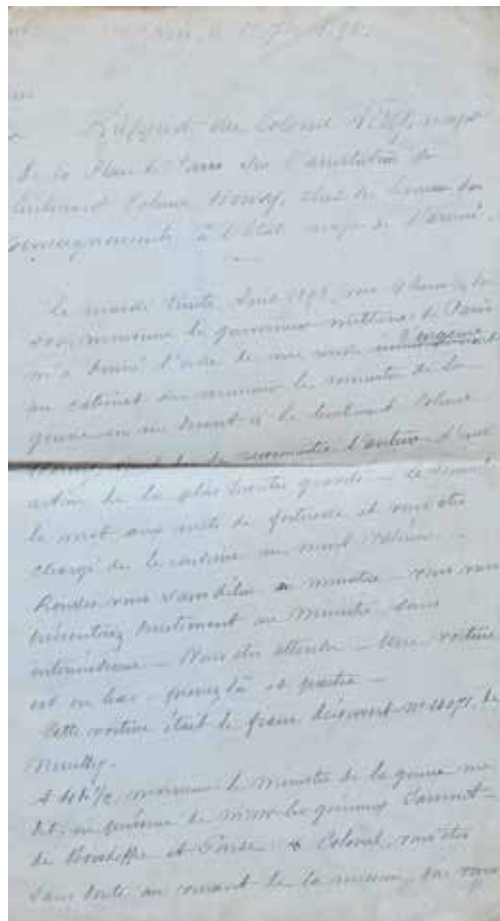 Rapport du Colonel Féry, major
de la Place de Paris sur l'arrestation du
Lieutenant Colonel Henry, chef du bureau des
Renseignements à l'état major de l'armée.
Le mardi trente Août 1898, vers 4 heures du
soir, monsieur le gouverneur militaire de Paris
m'a donné l'ordre de me rendre d'urgence
au cabinet de monsieur le ministre de la
guerre en me disant que le lieutenant Colonel
Henry de reconnaître l'auteur d'une
action de la plus haute gravité – Le
le met aux arrêts de forteresse et vous êtes
chargé de le conduire au mont Valérien. –
Rendez-vous sans délai au ministère – vous vous
présenterez directement au Ministre, sans
intermédiaire – Vous êtes attendu – Une voiture
est en bas – prenez la et partez –
Cette voiture était le fiacre découvert n° de
Neuilly.
A 4h ½, monsieur le Ministre de la guerre me
dit, en présence de MM. les généraux
de Boisdeffre et Gonse : Colonel, vous êtes
sans doute au courant de la mission que vous